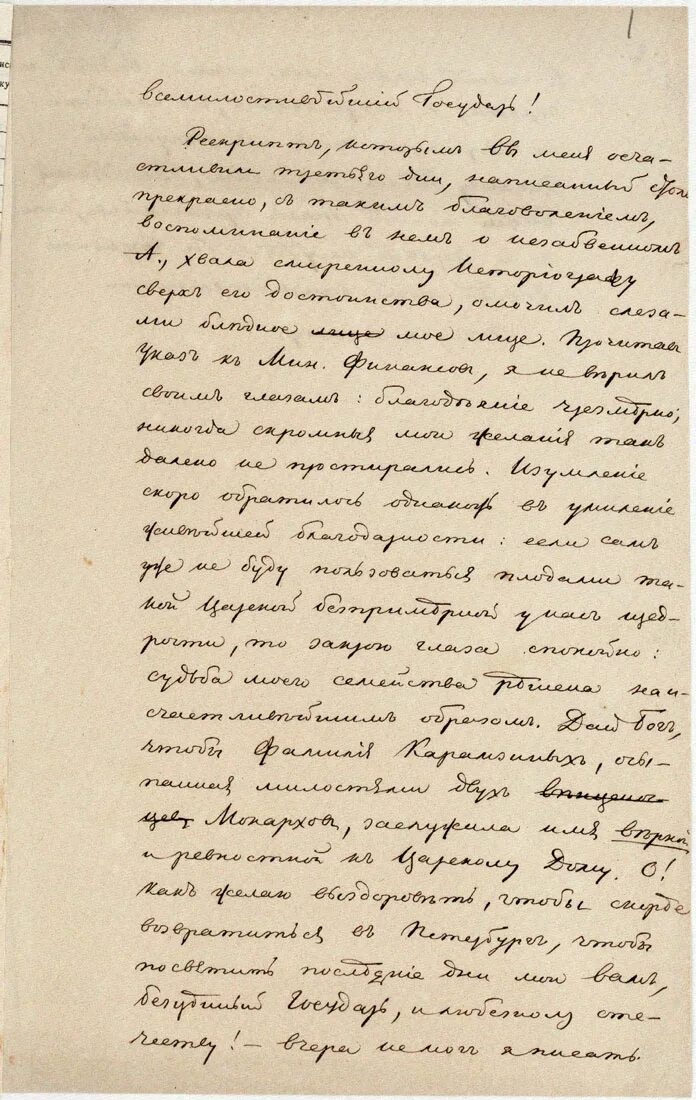 1
нс
ку
всемилостивѣйшій Государь!
Рескриптъ, которымъ вы меня осча-
стливили третьяго дни, написанный столь
прекрасно, съ такимъ благоволеніемъ,
воспоминаніе въ немъ о незабвенномъ
А., хвала смиренному Исторіографу
сверхъ его достоинства, омочили слеза-
ми блѣдное лице мое лице. Прочитавъ
указъ къ Мин. Финансовъ, я не вѣрилъ
своимъ глазамъ: благодѣяніе чрезмѣрно;
никогда скромныя мои желанія такъ
далеко не простирались. Изумленіе
скоро обратилось однакожъ въ умиленіе
живѣйшей благодарности: если самъ
уже не буду пользоваться плодами та-
кой Царской безпримѣрной у насъ щед-
рости, то закрою глаза спокойно:
судьба моего семейства рѣшена наи-
счастливѣйшимъ образомъ. Дай Богъ,
чтобы фамилія Карамзиныхъ, осы-
панная милостями двухъ вѣнцено-
цевъ Монарховъ, заслужила имя вѣрной
и ревностной къ Царскому Дому. О!
какъ желаю выздоровѣть, чтобы скорѣе
возвратиться въ Петербургъ, чтобы
посвятить послѣдніе дни мои вамъ,
безцѣнный Государь, и любезному оте-
честву! – вчера не могъ я писать.